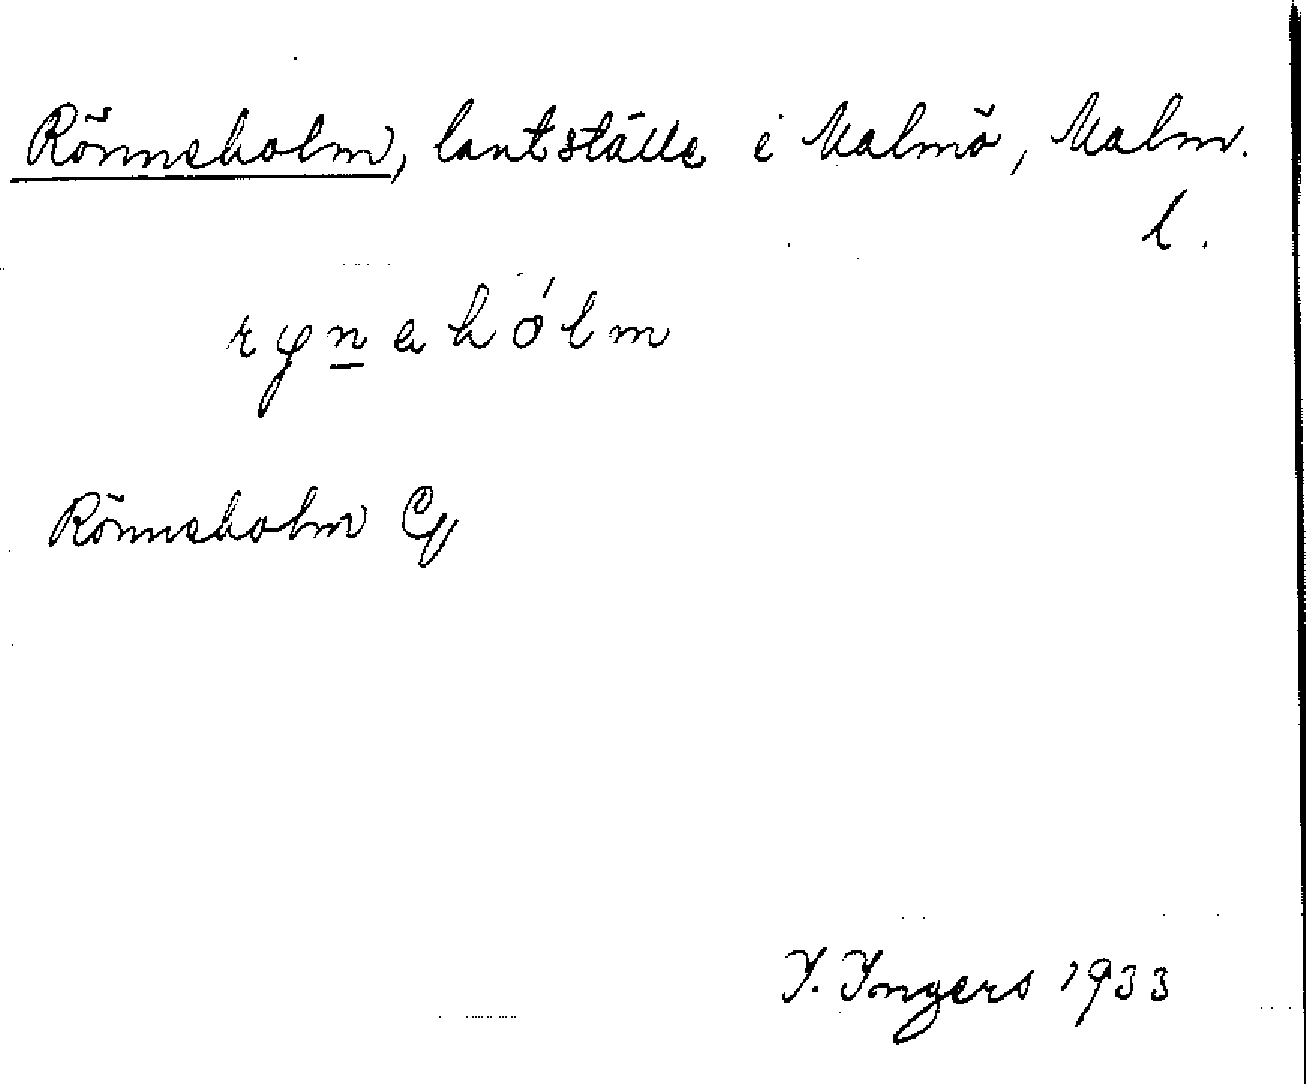 Rönneholm, lantställe i Malmö, Malm.
l.
rynehólm
Rönneholm Cg
I. Ingers 1933